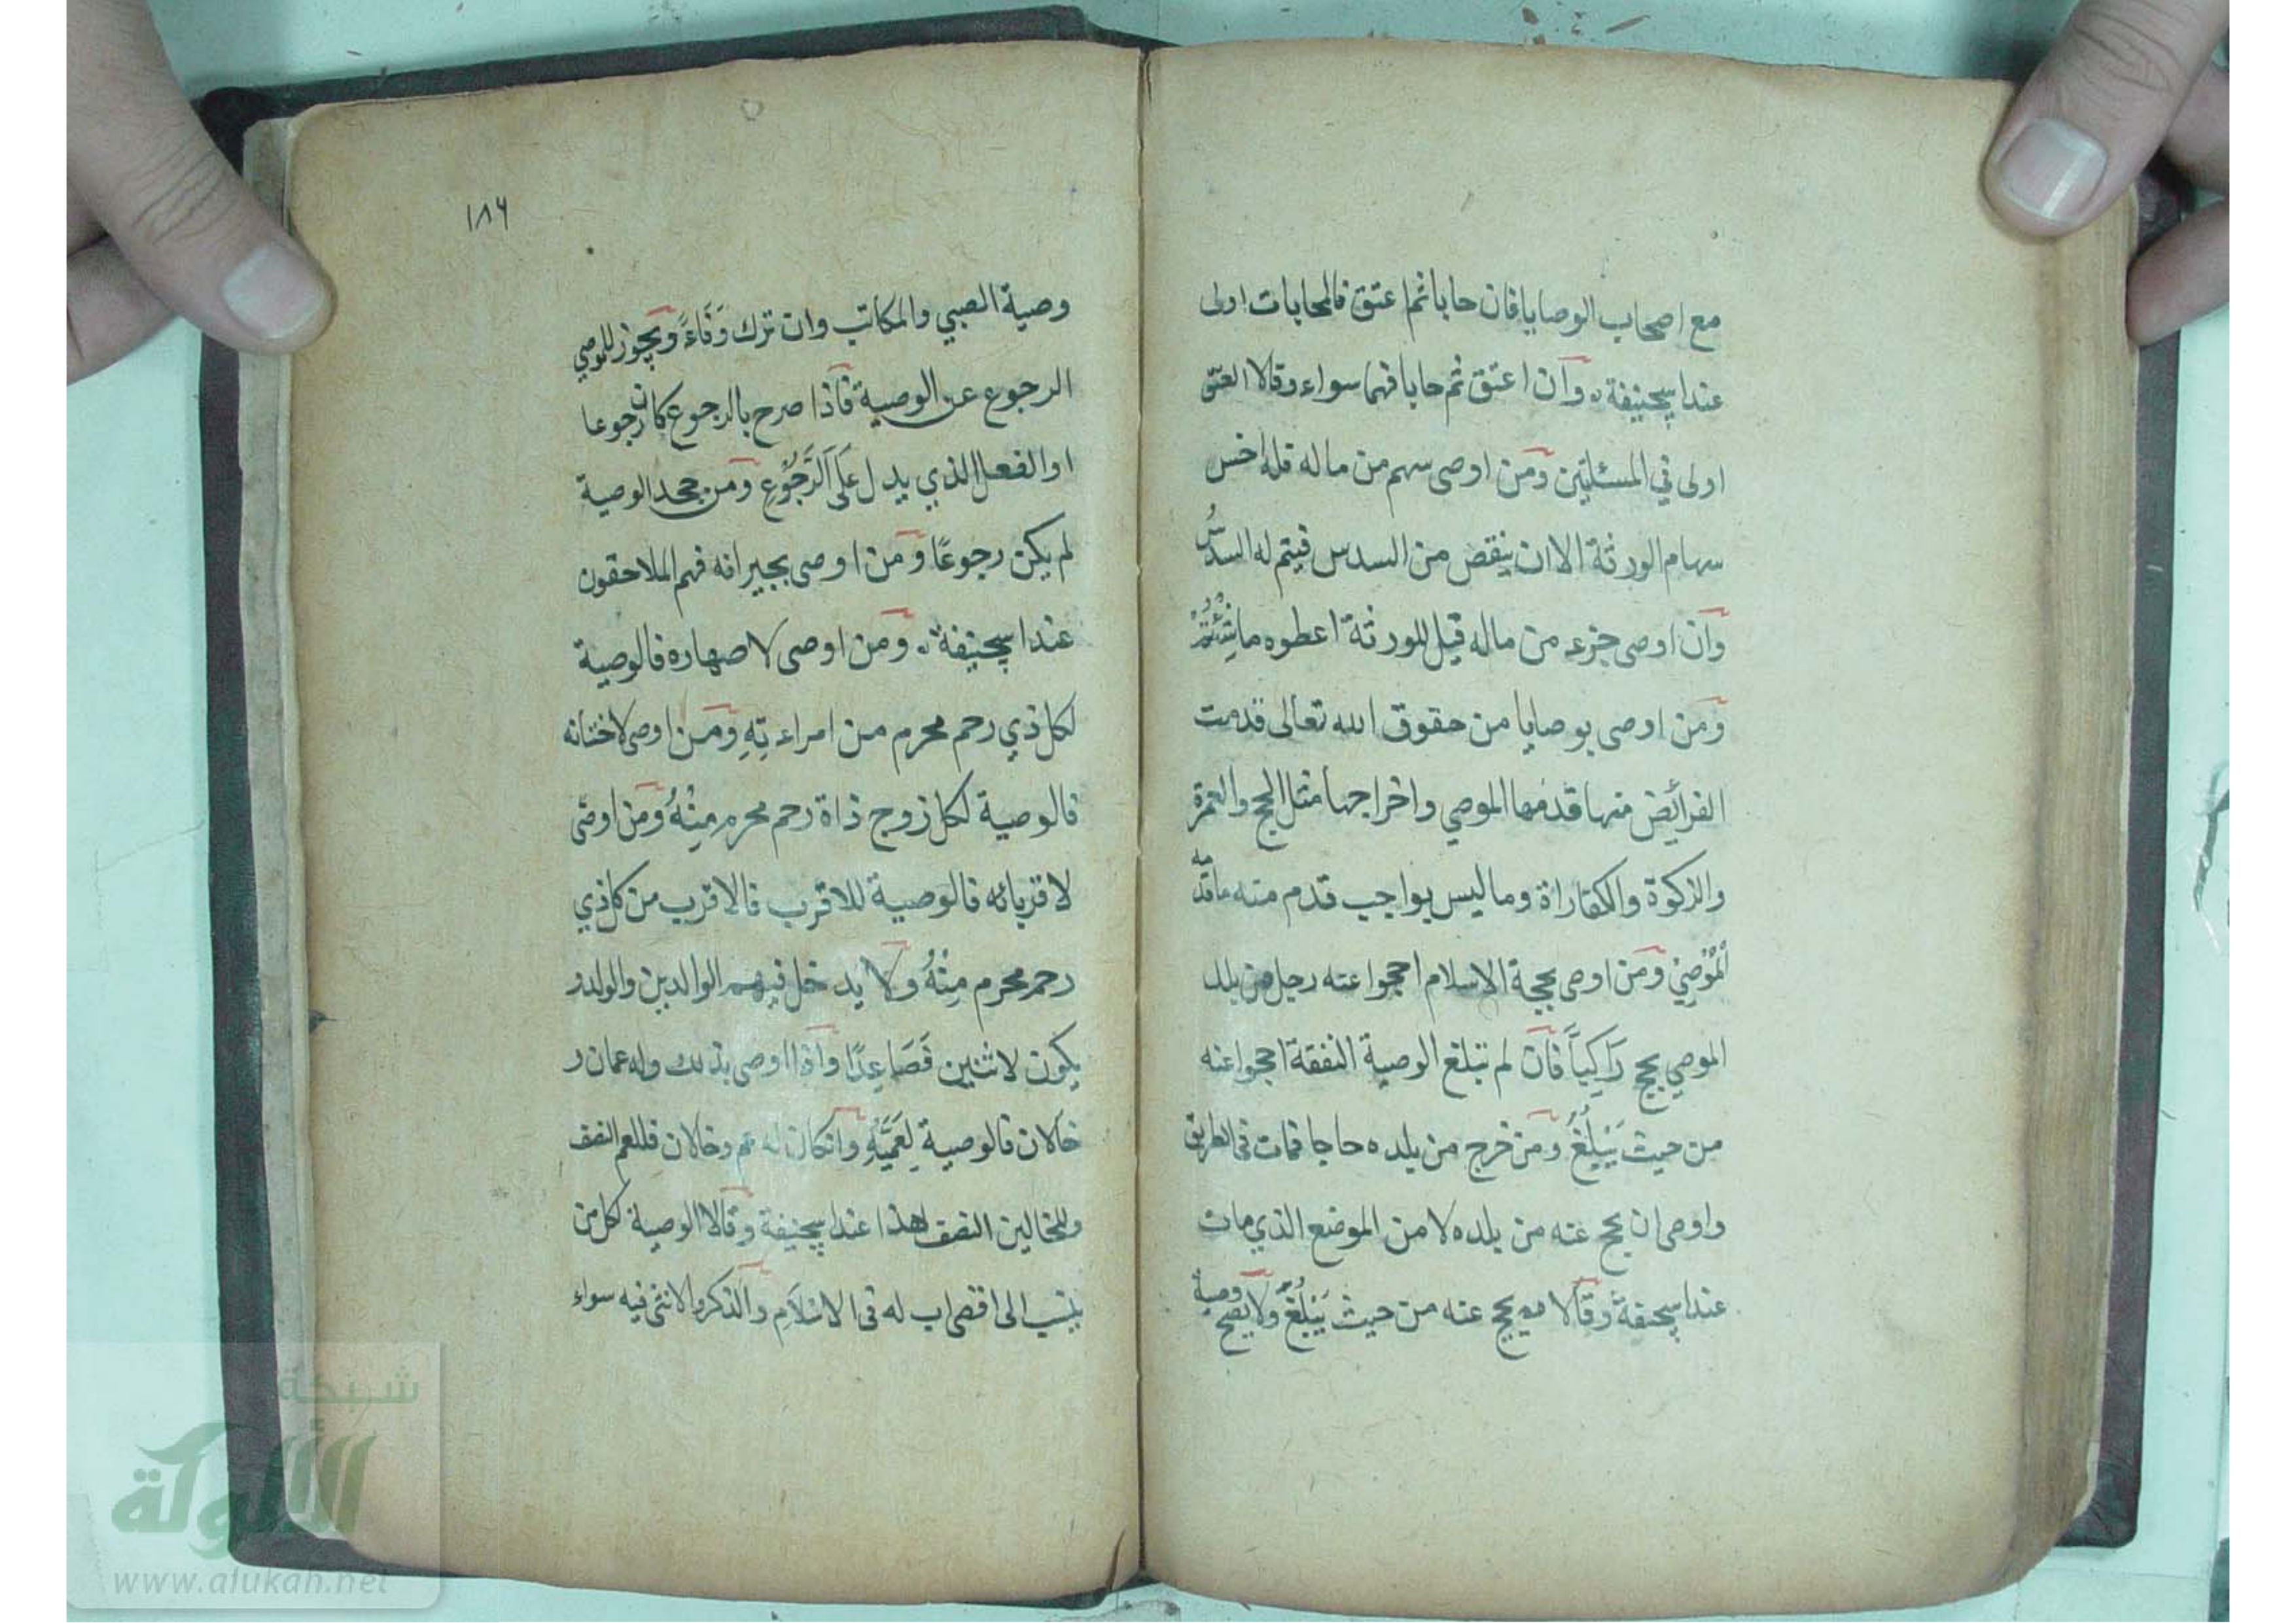 مع اصحاب الوصايا فان حابا ثم اعتق فالمحابات اولى
عند ابيحنيفة ره وان اعتق ثم حابا فهما سواء وقالا العتق
اولى في المسئلتين ومن اوصى سهم من ماله فله اخس
سهام الورثة الا ان ينقض من السدس فيتم له السدسُ
وان اوصى جزء من ماله قيل للورثة اعطوه ما شِئْتُمْ
ومن اوصى بوصايا من حقوق الله تعالى قدمت
الفرائض منها قدمها الموصي واخراجها مثل الحج والعمرة
والزكوة والكفاراة وما ليس بواجب قدم منه ما قدمه
الْمُوْصِيْ ومن اوصى بحجة الاسلام احجوا عنه رجل من بلد
الموصي بحج رَاكِباً فان لم تبلغ الوصية النفقة احجوا عنه
من حيث يَبْلُغُ ومن خرج من بلده حاجا فمات فى الطريق
واوصى ان يحج عنه من بلده لا من الموضع الذي مات
عند ابيحنيفة وقالا يحج عنه من حيث يَبْلُغُ ولا يصح وصية
١٨٦
وصية الصبي والمكاتب وان ترك وَفَاءً ويجوز للموصي
الرجوع عن الوصية فاذا صرح بالرجوع كان رجوعا
او الفعل الذي يدل عَلَى الرَّجُوْعِ ومن جحد الوصية
لم يكن رجوعًا ومن اوصى بجيرانه فهم الملاحقون
عند ابيحنيفة ره ومن اوصى لاصهاره فالوصية
لكل ذي رحم محرم من امراءتِهِ ومن اوصى لاختانه
فالوصية لكل زوج ذاة رحم محرم مِنْهُ ومن اوصى
لاقربائه فالوصية للاقرب فالاقرب من كل ذي
رحم محرم مِنْهُ ولا يدخل فيهم الوالدين والولد و
يكون لاثنين فَصَاعِدًا واذا اوصى بذلك وله عمان و
خالان فالوصية لِعَمَّيْهِ وانكان له عم وخالان فللعم النصف
وللخالين النصف لهذا عند ابيحنيفة وقالا الوصية لكل من
ينسب الى اقصى اب له فى الاسْلَامِ والذكر والانثى فيه سواء
شبكة
الألوكة
www.alukah.net